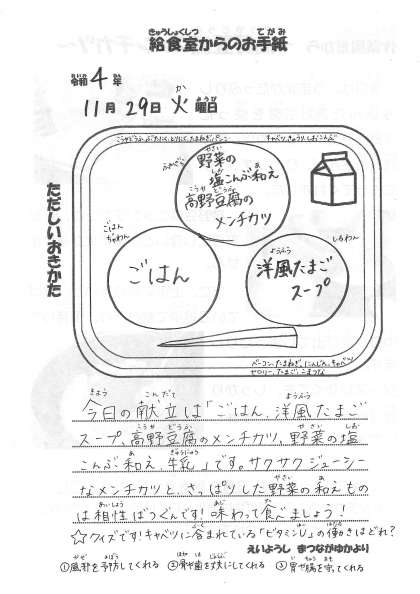 給食室からのお手紙
令和4年
11月29日火曜日
ただしいおきかた
キャベツ、きゅうり、しおこんぶ
野菜の
塩こんぶ和え
高野豆腐の
メンチカツ
ごはん
ちゃわん
ごはん
しるわん
洋風たまご
スープ
ベーコン、たまねぎ、にんじん、キャベツ
セロリー、たまご、こまつな
今日の献立は「ごはん、洋風たまご
スープ、高野豆腐のメンチカツ、野菜の塩
こんぶ和え、牛乳」です。サクサクジューシー
なメンチカツと、さっぱりした野菜の和えもの
は相性ばつぐんです!味わって食べましょう!
☆クイズです!キャベツに含まれている「ビタミンU」の働きはどれ?
えいようし まつながゆかより
①風邪を予防してくれる ②骨や歯を丈夫にしてくれる ③胃や腸を守ってくれる